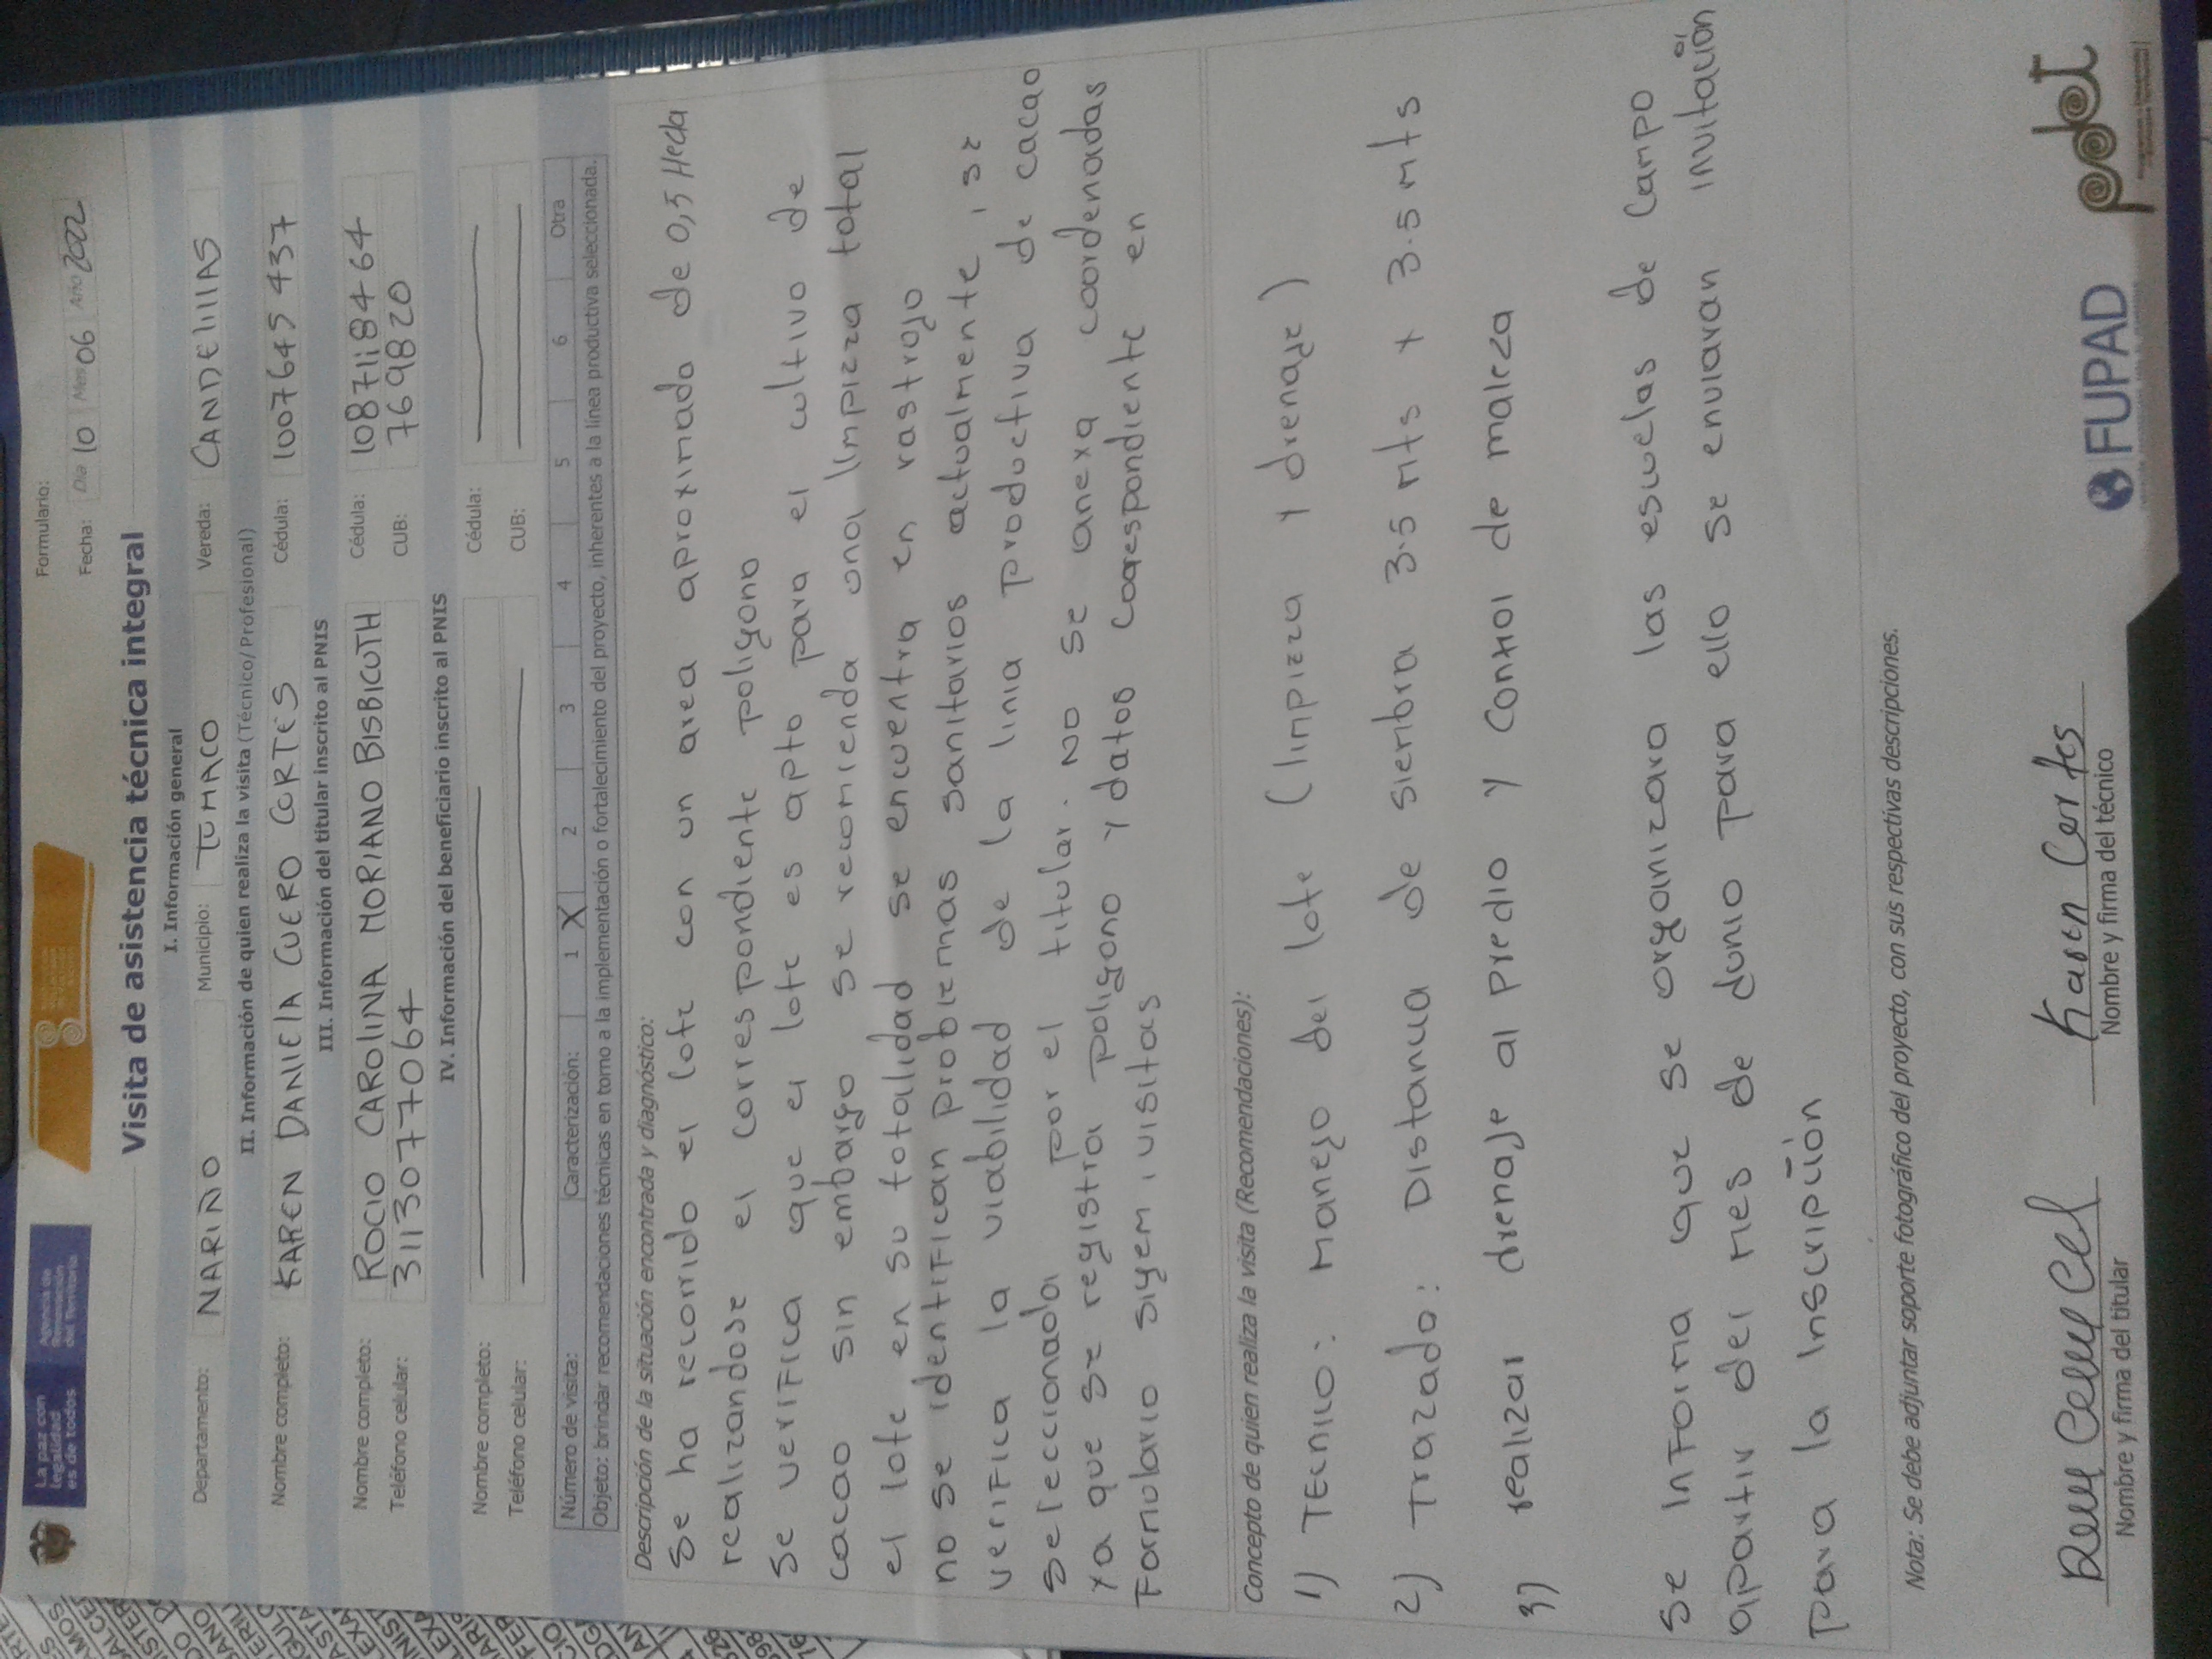 La paz con
legalidad
es de todos
Agencia de
Renovación
del Territorio
Formulario:
Fecha: Día 10 Mes 06 Año 2022
Visita de asistencia técnica integral
I. Información general
Departamento: NARIÑO Municipio: TUMACO Vereda: CANDElIIAS
II. Información de quien realiza la visita (Técnico/ Profesional)
Nombre completo: KAREN DANIElA CUERO CORTES Cédula: 1007645437
III. Información del titular inscrito al PNIS
Nombre completo: ROCIO CAROlINA MORIANO BISBICUTH Cédula: 1087118464
Teléfono celular: 3113077064 CUB: 7698820
IV. Información del beneficiario inscrito al PNIS
Nombre completo: Cédula:
Teléfono celular: CUB:
Número de visita: Caracterización: 1 X 2 3 4 5 6 Otra
Objeto: brindar recomendaciones técnicas en torno a la implementación o fortalecimiento del proyecto, inherentes a la línea productiva seleccionada.
Descripción de la situación encontrada y diagnóstico:
Se ha recorrido el lote con un area aproximado de 0,5 Hecta
realizandose el correspondiente poligono
Se verifica que el lote es apto para el cultivo de
cacao sin embargo se recomienda una limpieza total
el lote en su totalidad se encuentra en rastrojo
no se identifican problemas sanitarios actualmente, se
verifica la viabilidad de la linia productiva de cacao
seleccionada por el titular. No se anexa coordenadas
ya que se registra poligono y datos correspondiente en
Formulario sigem, visitas
Concepto de quien realiza la visita (Recomendaciones):
1) Tecnico: manejo del lote (limpieza y drenaje)
2) Trazado: Distancia de siembra 3.5 mts x 3.5 mts
3) realizar drenaje al predio y control de maleza
Se informa que se organizara las escuelas de campo
apartir del mes de Junio para ello se enviaran invitación
para la Inscripción
Nota: Se debe adjuntar soporte fotográfico del proyecto, con sus respectivas descripciones.
Karen Cortes
Nombre y firma del titular Nombre y firma del técnico
FUPAD
pdet